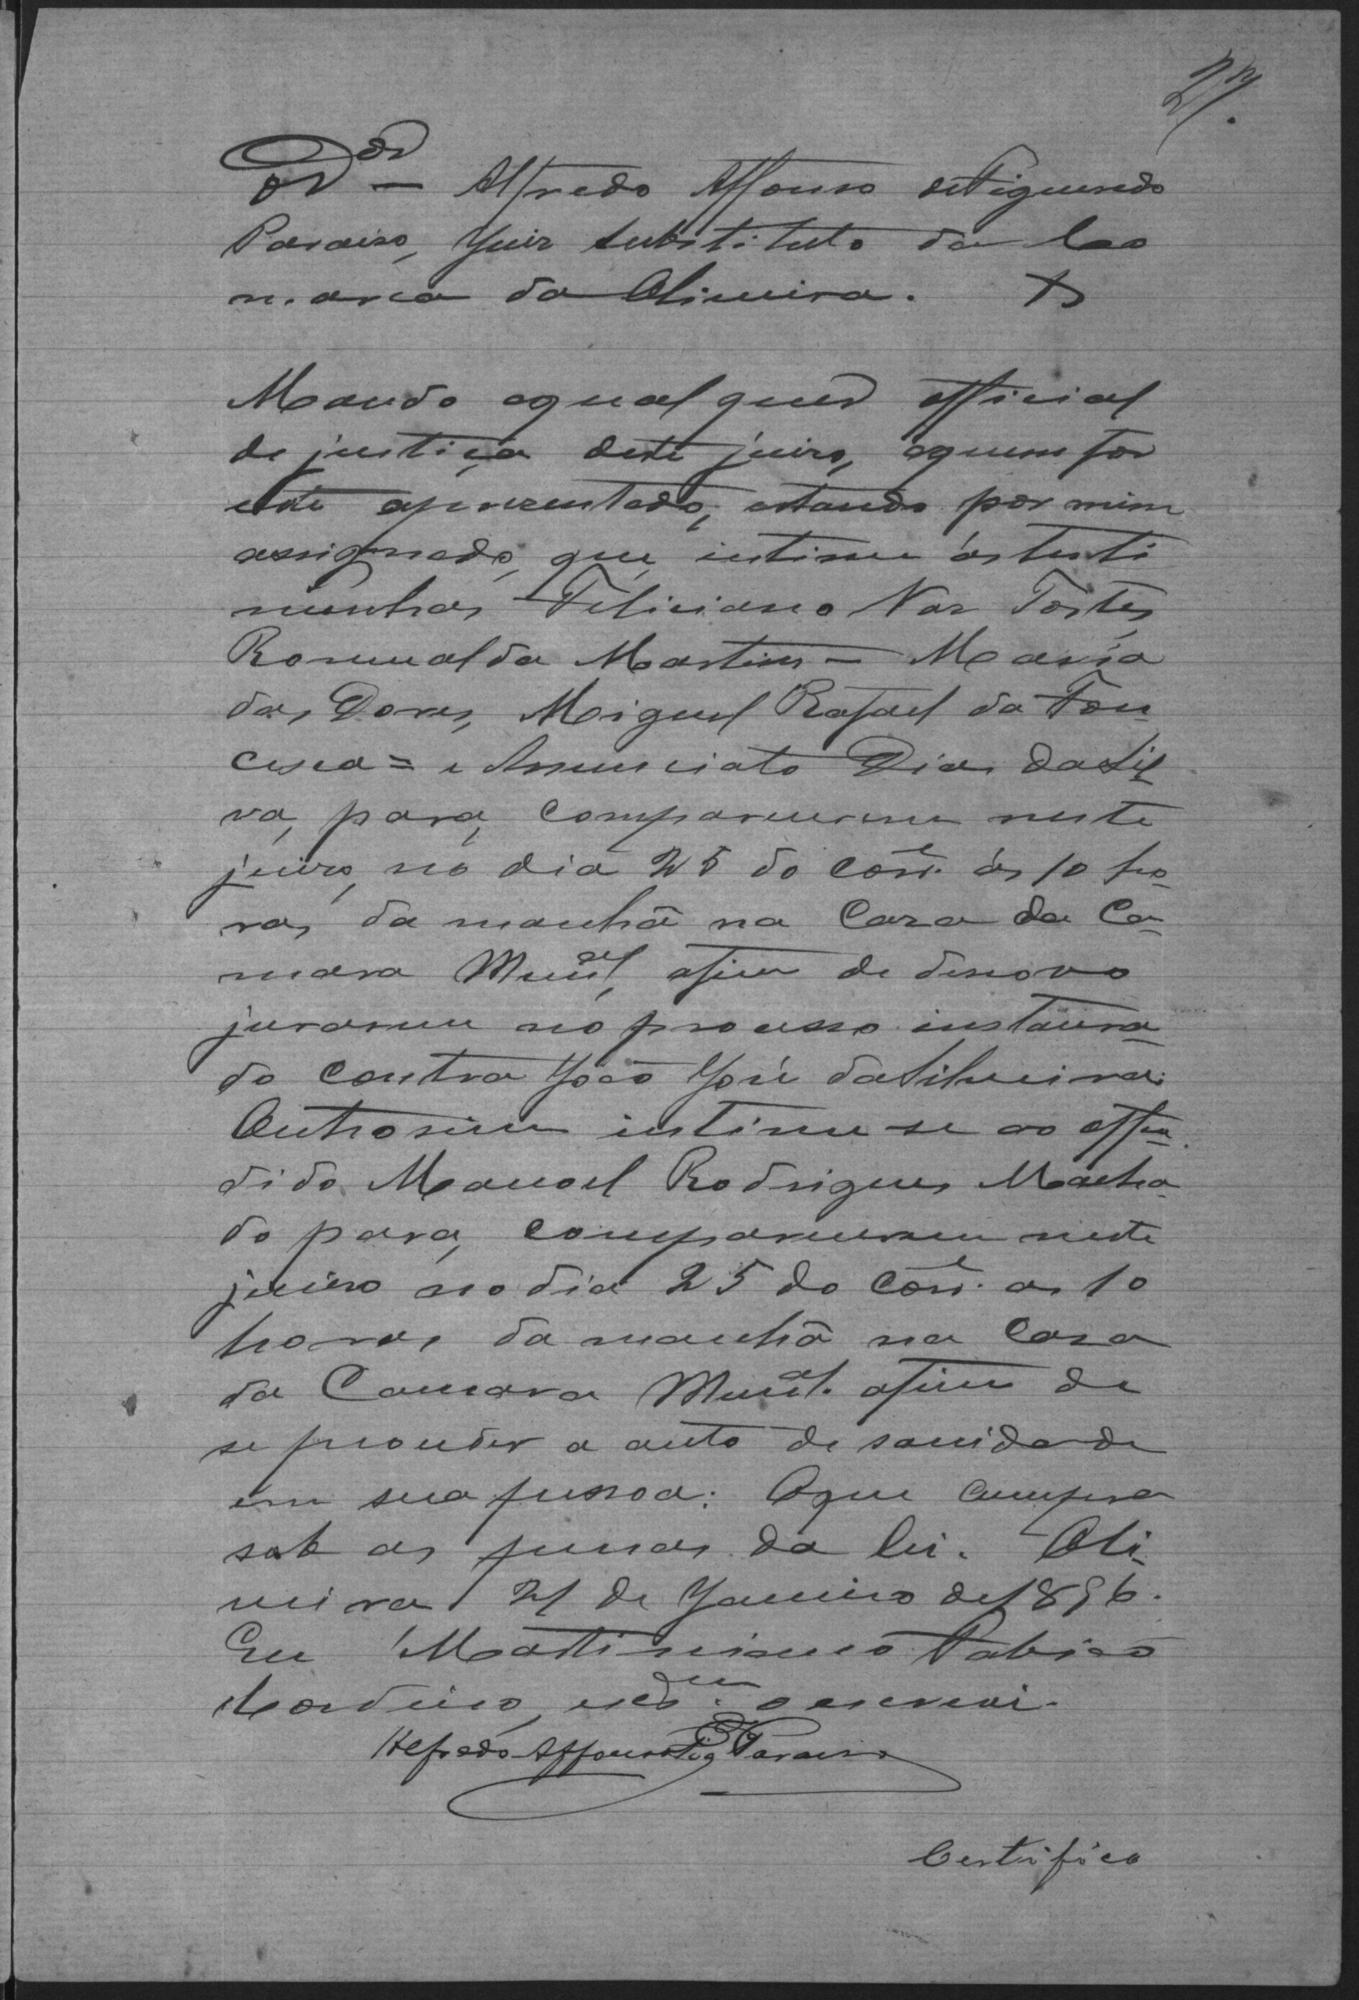 27.
O Dor — Alfredo Affonso de Figueredo
Paraiso, Juiz Substituto da Co
marca da Oliveira.
Mando a qual quer official
de justiça deste juizo, a quem for
este aprezentado, estando por mim
assignado, que intime ás teste
munhas Feliciano Vaz Tostes,
Romualda Martins — Maria
das Dores, Miguel Rafael da Fon
ceca = e Anunciato Dias da Sil
va, para, comparecerem neste
juizo, no dia 25 do corre. ás 10 ho-
ras, da manhã na Caza da Ca-
mara Munal, afim de denovo
jurarem no processo instaura-
do contra João José da Silveira.
Outrosim intime se ao offen-
dido Manoel Rodrigues Macha-
do para, comparecerem neste
juizo no dia 25 do corre. as 10
horas da manhã na Caza
da Camara Munal. afim de
se proceder a auto de sanidade
em sua pessoa: O que cumpra
sob as penas da lei. Oli-
veira 21 de Janeiro de 1896.
Eu Martiniano Fabião
Cordeiro, escram. o escrevi.
Alfredo Affonso Figdo Paraiso
Certifico